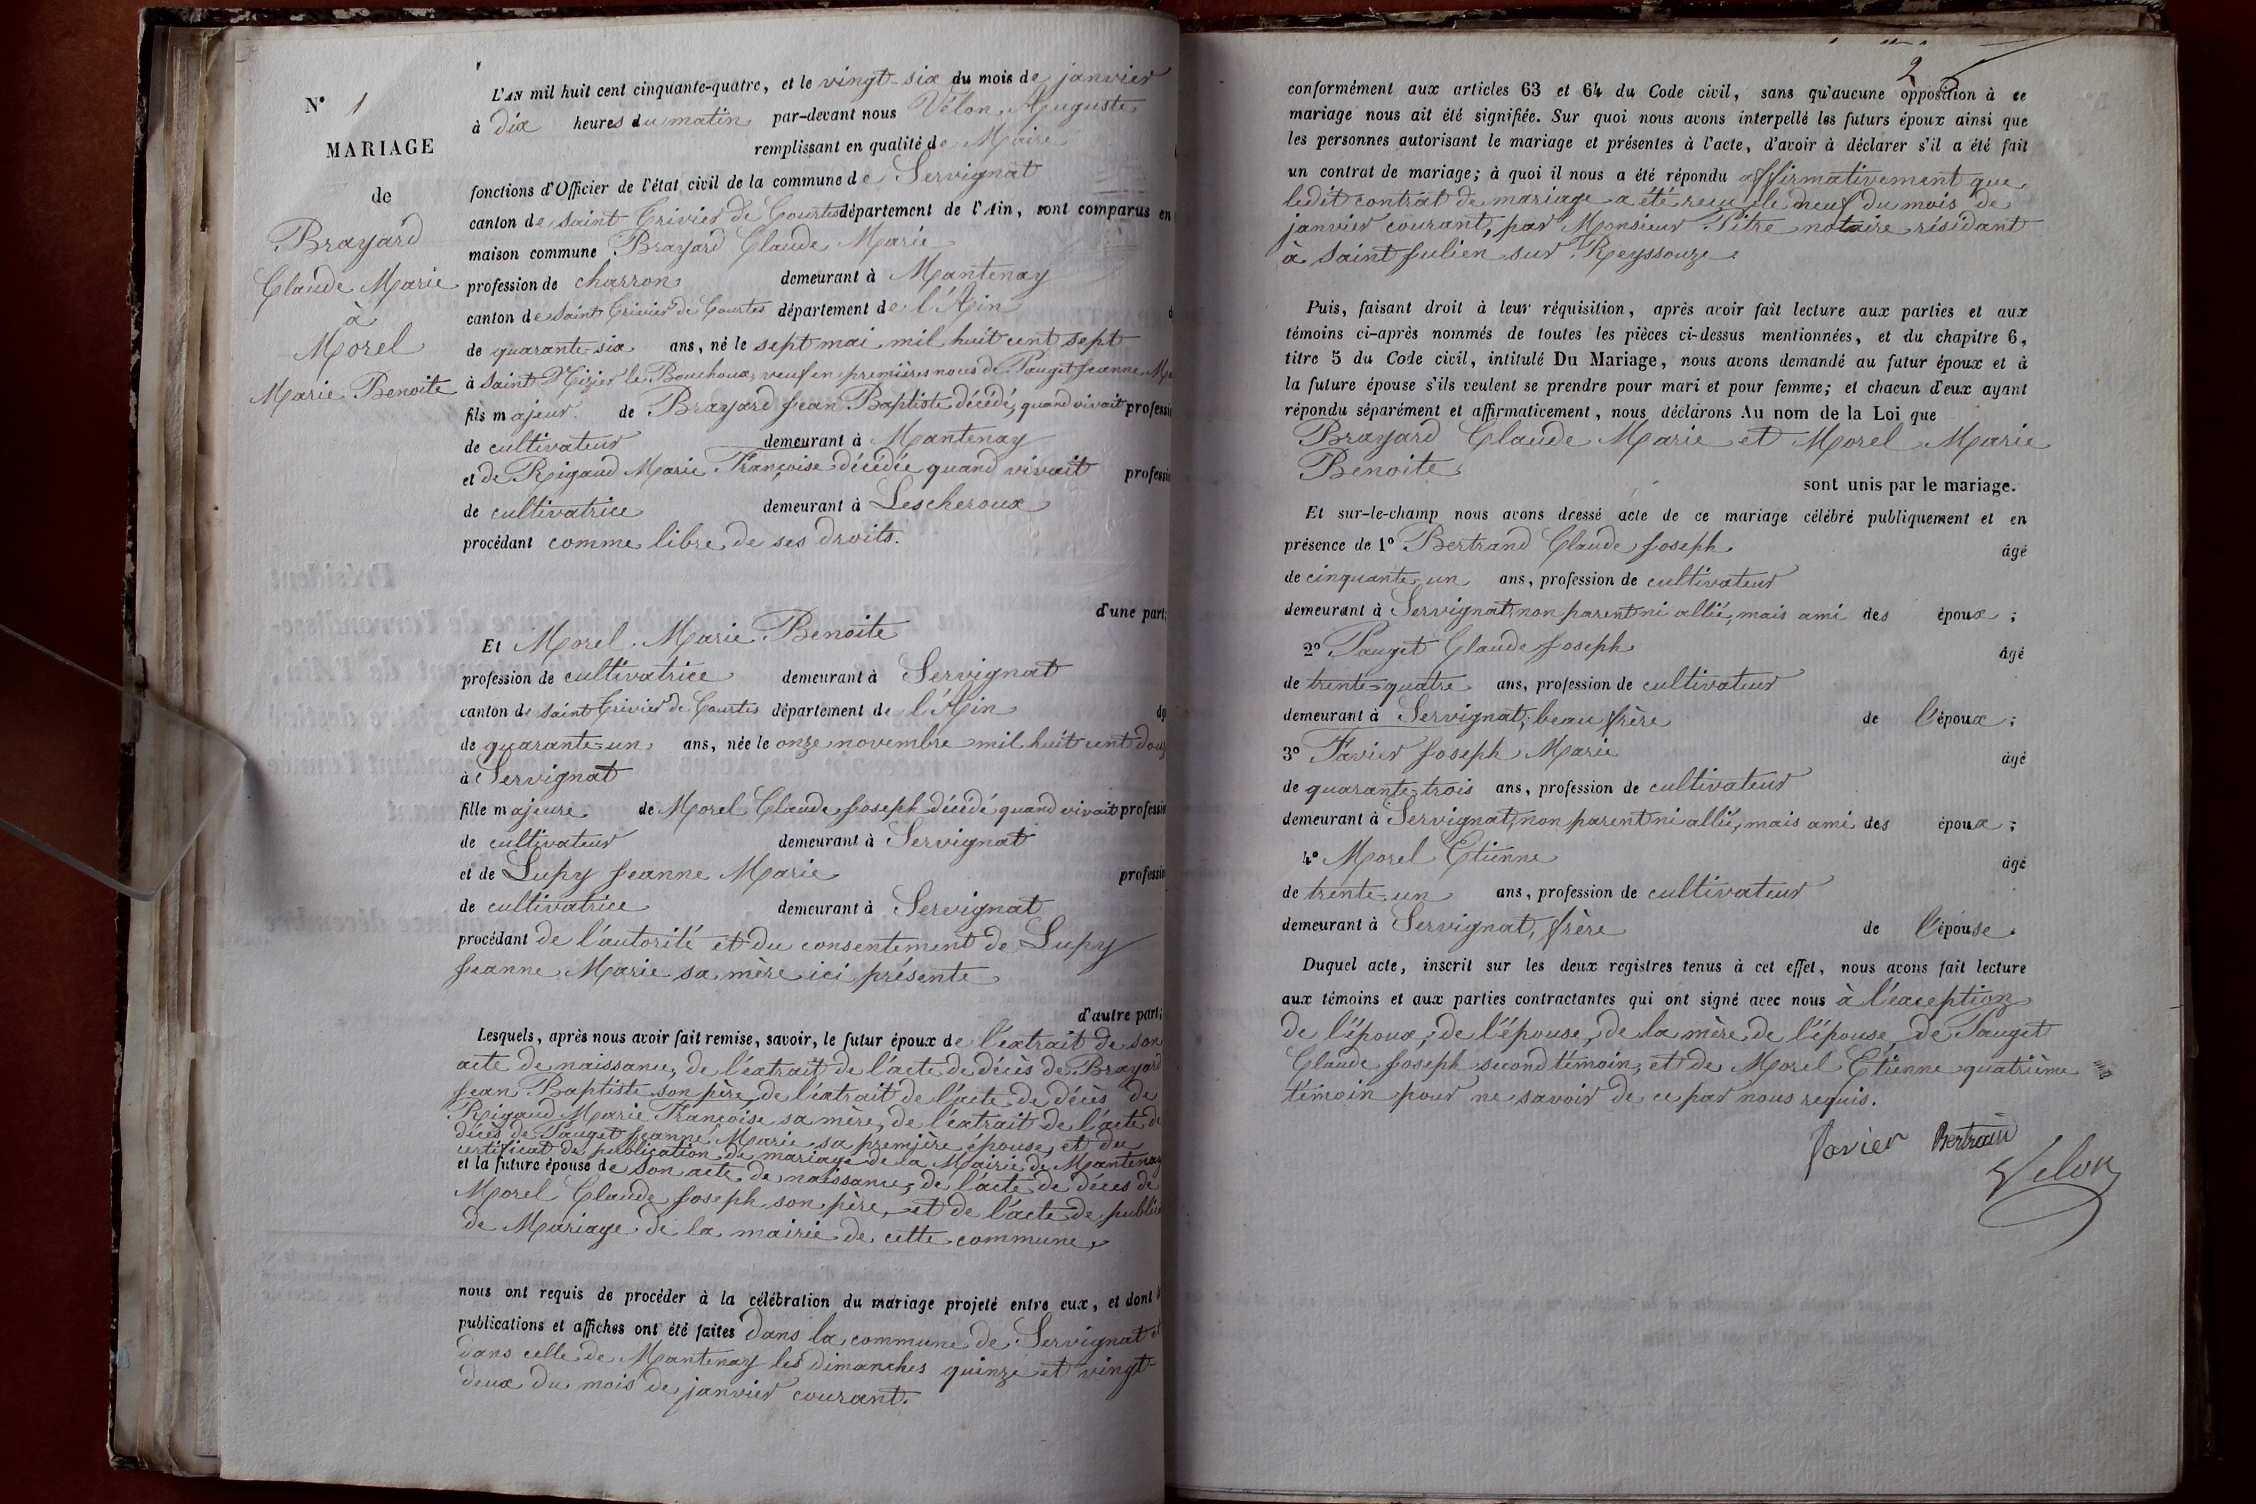 N° 1
MARIAGE
de
Brayard
Claude Marie
à
Morel
Marie Benoite
L'AN mil huit cent cinquante-quatre, et le vingt-six du mois de janvier
à dix heures du matin par-devant nous Vélon Auguste
remplissant en qualité de Maire
fonctions d'Officier de l'état civil de la commune de Servignat
canton de Saint Trivier de Courtes département de l'Ain, sont comparus en
maison commune Brayard Claude Marie
profession de charron demeurant à Mantenay
canton de Saint Trivier de Courtes département de l'Ain
de quarante-six ans, né le sept mai mil huit cent sept
à Saint Nizier le Bouchoux, veuf en premières noces de Pauget Jeanne Ma
fils majeur de Brayard Jean Baptiste décédé, quand vivait professi
de cultivateur demeurant à Mantenay
et de Rigaud Marie Françoise décédée quand vivait professi
de cultivatrice demeurant à Lescheroux
procédant comme libre de ses droits.
d'une part;
Et Morel Marie Benoite
profession de cultivatrice demeurant à Servignat
canton de Saint Trivier de Courtes département de l'Ain
de quarante-un ans, née le onze novembre mil huit cent douz
à Servignat
fille majeure de Morel Claude Joseph décédé quand vivait professi
de cultivateur demeurant à Servignat
et de Lupy Jeanne Marie professi
de cultivatrice demeurant à Servignat
procédant de l'autorité et du consentement de Lupy
Jeanne Marie sa mère ici présente
d'autre part;
Lesquels, après nous avoir fait remise, savoir, le futur époux de l'extrait de son
acte de naissance, de l'extrait de l'acte de décès de Brayard
Jean Baptiste son père, de l'extrait de l'acte de décès de
Rigaud Marie Françoise sa mère, de l'extrait de l'acte de
décès de Pauget Jeanne Marie sa première épouse, et du
certificat de publication de mariage de la Mairie de Mantenay
et la future épouse de son acte de naissance, de l'acte de décès de
Morel Claude Joseph son père, et de l'acte de public
de Mariage de la mairie de cette commune,
nous ont requis de procéder à la célébration du mariage projeté entre eux, et dont
publications et affiches ont été faites dans la commune de Servignat et
dans celle de Mantenay les dimanches quinze et vingt-
deux du mois de janvier courant.
2
conformément aux articles 63 et 64 du Code civil, sans qu'aucune opposition à ce
mariage nous ait été signifiée. Sur quoi nous avons interpellé les futurs époux ainsi que
les personnes autorisant le mariage et présentes à l'acte, d'avoir à déclarer s'il a été fait
un contrat de mariage; à quoi il nous a été répondu affirmativement que
ledit contrat de mariage a été reçu le neuf du mois de
janvier courant, par Monsieur Pitre notaire résidant
à Saint Julien sur Reyssouze
Puis, faisant droit à leur réquisition, après avoir fait lecture aux parties et aux
témoins ci-après nommés de toutes les pièces ci-dessus mentionnées, et du chapitre 6,
titre 5 du Code civil, intitulé Du Mariage, nous avons demandé au futur époux et à
la future épouse s'ils veulent se prendre pour mari et pour femme; et chacun d'eux ayant
répondu séparément et affirmativement, nous déclarons Au nom de la Loi que
Brayard Claude Marie et Morel Marie
Benoite
sont unis par le mariage.
Et sur-le-champ nous avons dressé acte de ce mariage célébré publiquement et en
présence de 1° Bertrand Claude Joseph âgé
de cinquante-un ans, profession de cultivateur
demeurant à Servignat, non parent ni allié, mais ami des époux;
2° Pauget Claude Joseph âgé
de trente-quatre ans, profession de cultivateur
demeurant à Servignat, beau frère de l'époux;
3° Favier Joseph Marie âgé
de quarante-trois ans, profession de cultivateur
demeurant à Servignat, non parent ni allié, mais ami des époux;
4° Morel Etienne âgé
de trente-un ans, profession de cultivateur
demeurant à Servignat, frère de l'épouse.
Duquel acte, inscrit sur les deux registres tenus à cet effet, nous avons fait lecture
aux témoins et aux parties contractantes qui ont signé avec nous à l'exception
de l'époux, de l'épouse, de la mère de l'épouse, de Pauget
Claude Joseph second témoin, et de Morel Etienne quatrième
témoin pour ne savoir de ce par nous requis.
Favier Bertrand
Velon